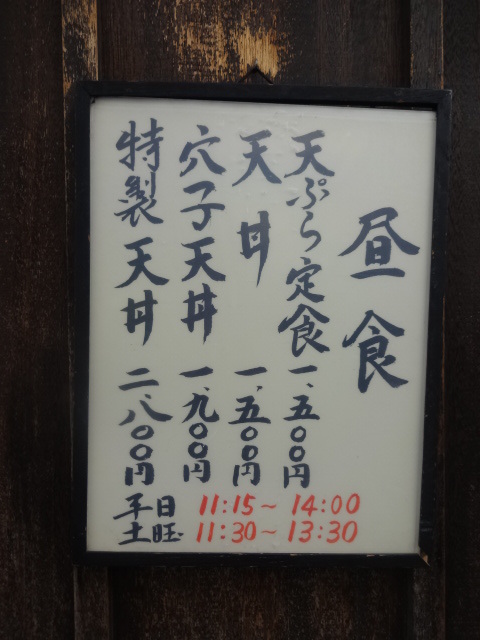 昼食
天ぷら定食 一、五〇〇円
天丼 一、五〇〇円
穴子天丼 一、九〇〇円
特製天丼 二、八〇〇円
平日 11:15～14:00
土旺 11:30～13:30